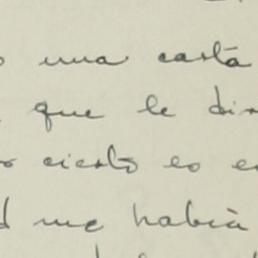 una carta
que le dir
cierto es e
d me había